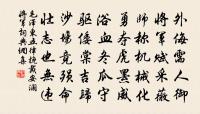 外侮需人御
將軍賦采薇
師称機械化
勇奪虎羆威
浴血冬瓜守
驅倭棠吉歸
沙場竟殞命
壯志也無違
毛澤東五律挽戴安瀾
將軍詞典網喜